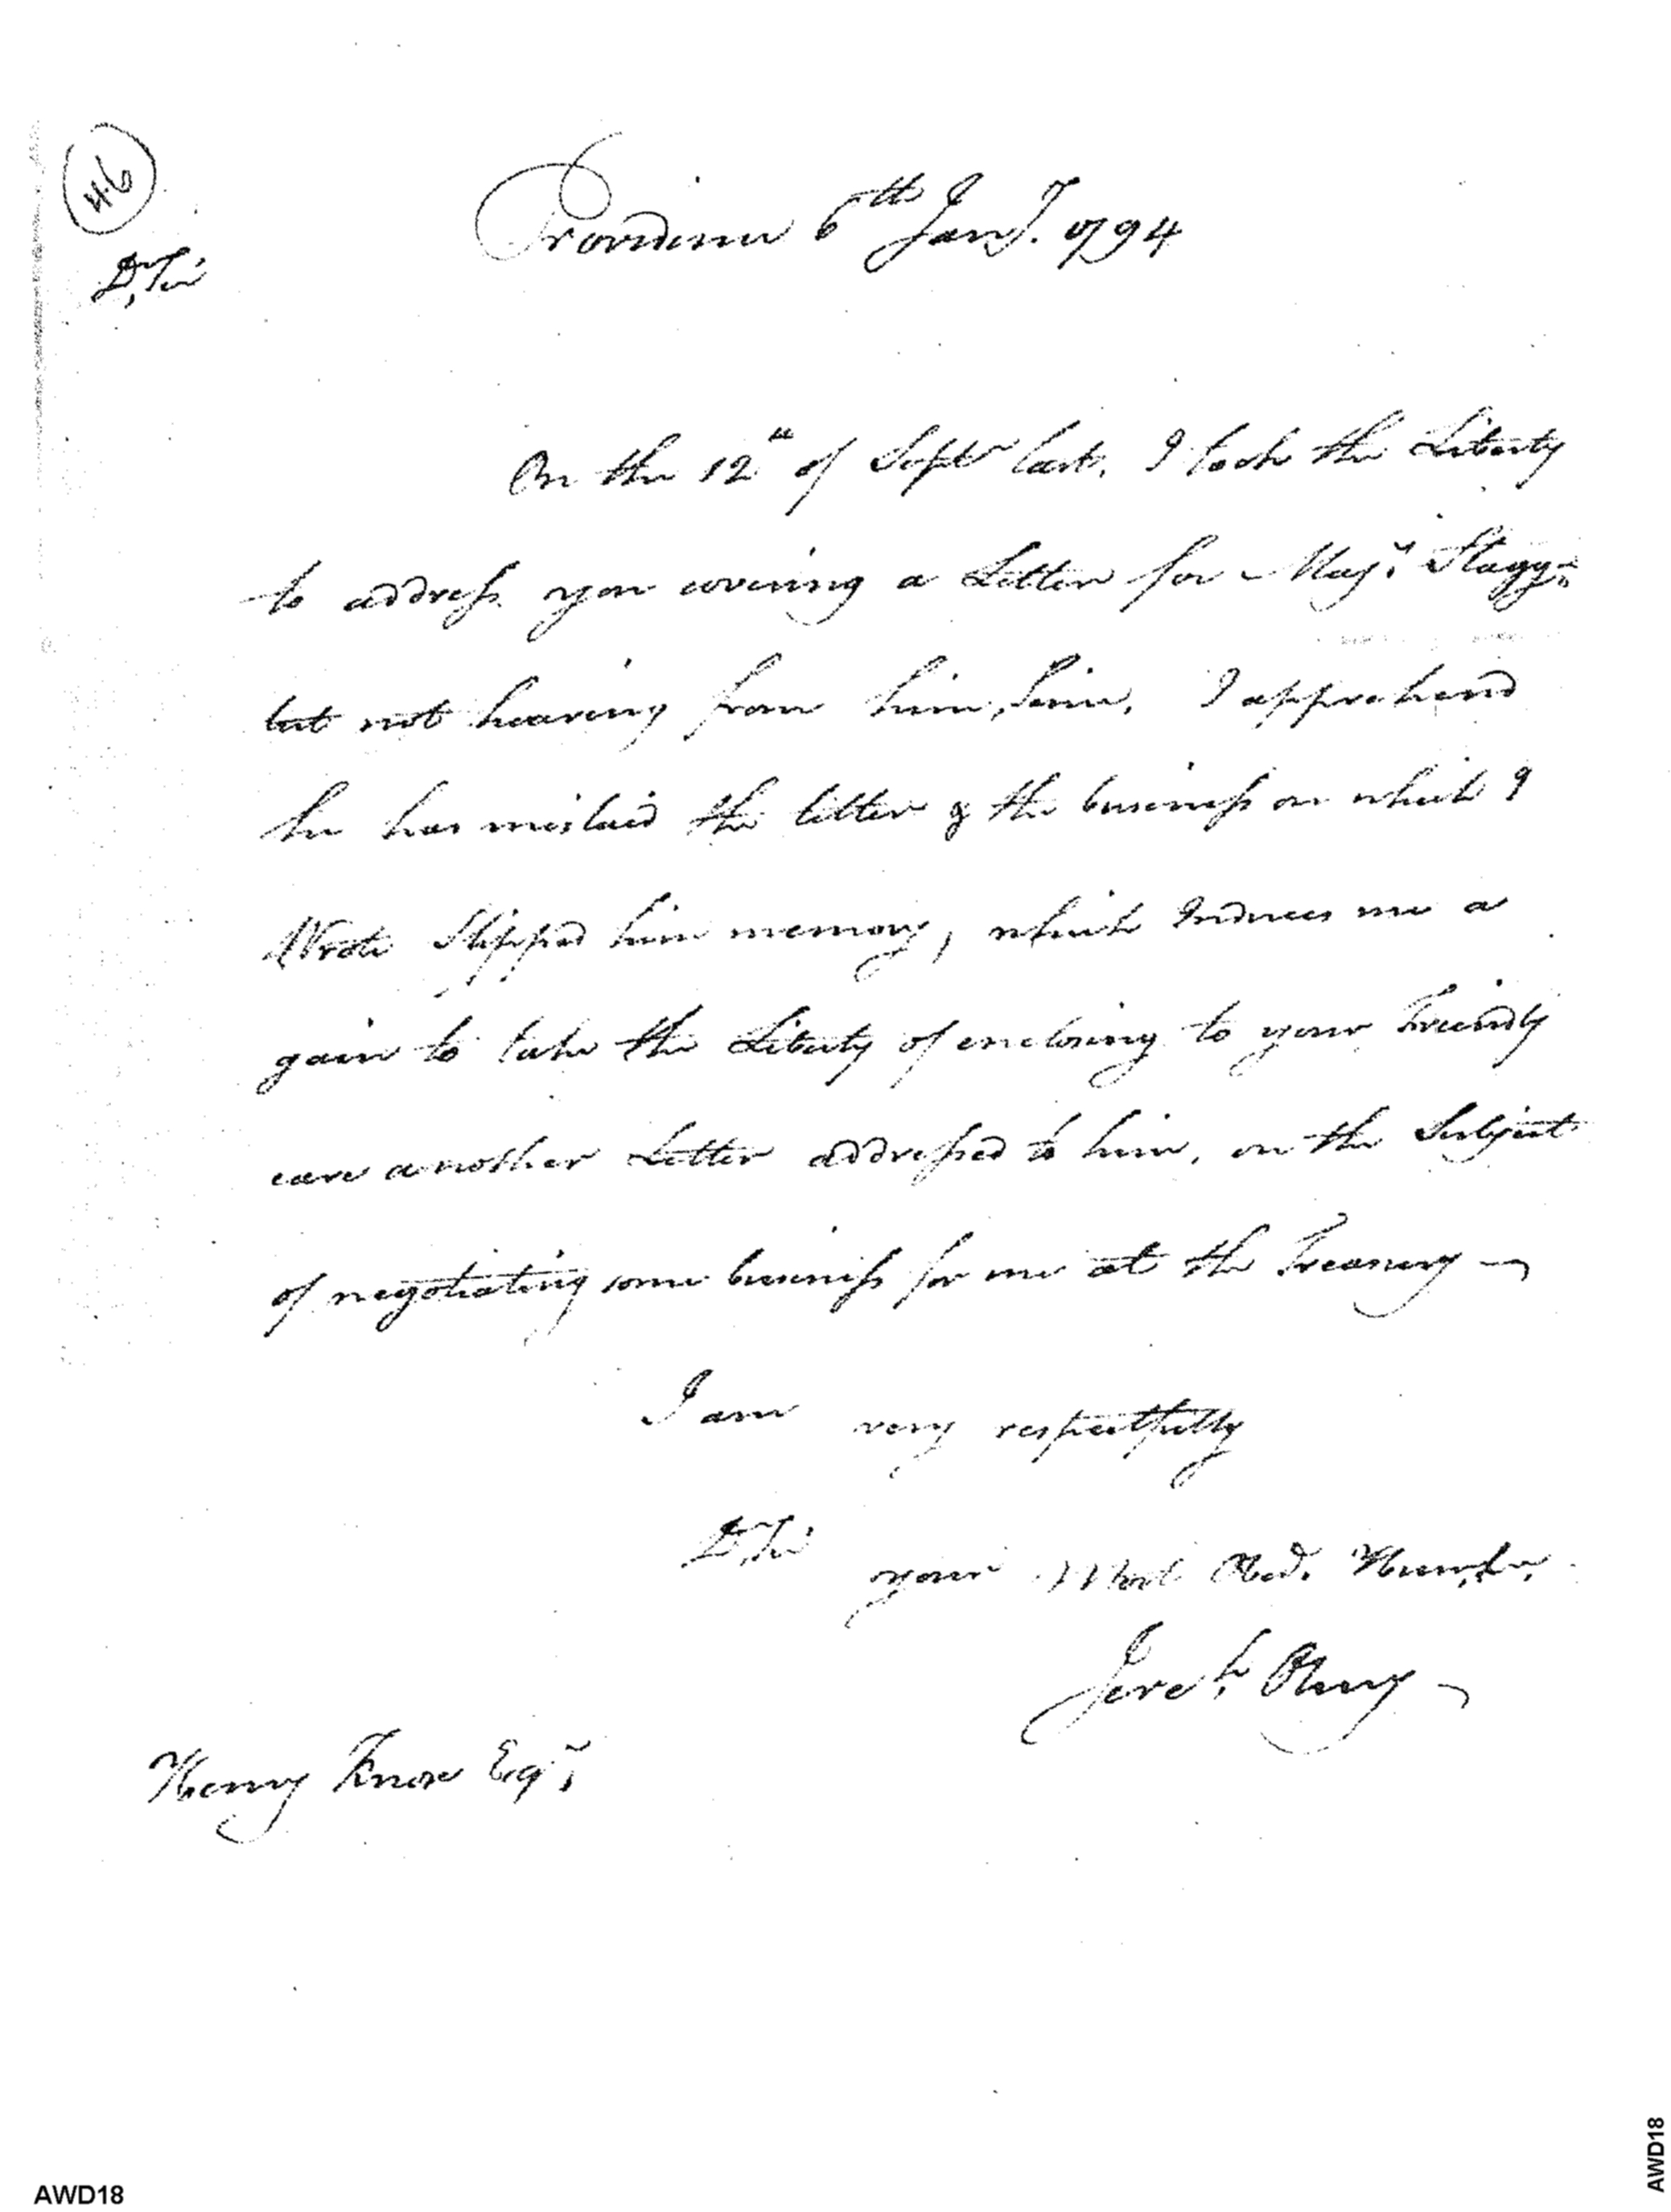 46
Providence 6th Jany. 1794
Dr. Sir
On the 12th of Septr last, I took the Liberty
to address you covering a Letter for Majr. Stagg,
but not hearing from him, Since, I apprehend
he has mislaid the letter & the business on which I
Wrote Slipped him memory, which Induces me a
gain to take the Liberty of enclosing to your Friendly
care another Letter addressed to him, on the Subject
of negotiating some business for me at the Treasury —
I am very respectfully
Dr. Sir
your Most Obed. Humb.
Jereh. Olney
Henry Knox Esqr.
AWD18
AWD18